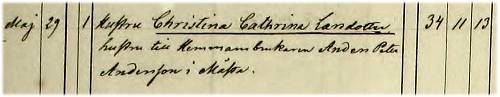 Maj 29 1 Hustru Christina Cathrina Landotter, 34 11 13
hustru till Hemmansbrukaren Anders Peter
Andersson i Måssa.